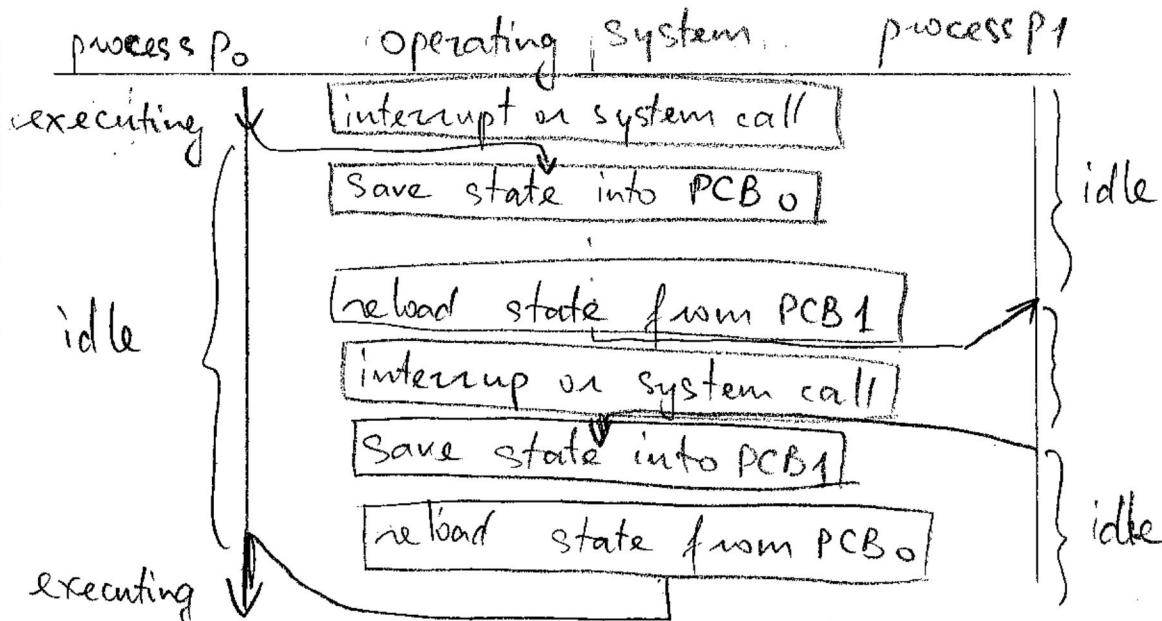 process P0 operating system process P1
executing
interrupt or system call
save state into PCB 0
idle
reload state from PCB1
idle
interrup or system call
save state into PCB1
reload state from PCB0
idle
executing